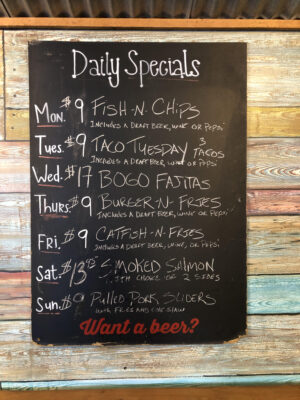 Daily Specials
Mon. $9 FISH-N-CHIPS
INCLUDES A DRAFT BEER, WINE OR PEPSI
Tues. $9 TACO TUESDAY 3 TACOS
INCLUDES A DRAFT BEER, WINE OR PEPSI
Wed. $17 BOGO FAJITAS
Thurs. $9 BURGER-N-FRIES
INCLUDES A DRAFT BEER, WINE OR PEPSI
Fri. $9 CATFISH-N-FRIES
INCLUDES A DRAFT BEER, WINE, OR PEPSI
Sat. $13 SMOKED SALMON
CHOICE OF 2 SIDES
Sun. $9 Pulled Pork SLIDERS
WITH FRIES AND COLESLAW
Want a beer?